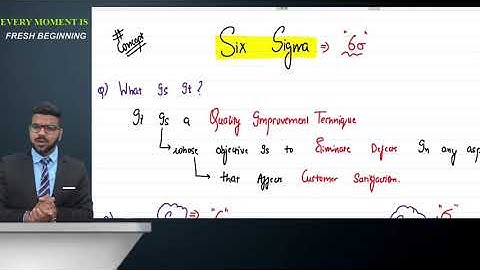 EVERY MOMENT IS
FRESH BEGINNING
# Concept
Six Sigma ⇒ "6σ"
Q) What Is It?
It Is a Quality Improvement Technique
whose objective Is to Eliminate Defects In any asp
that Affects Customer Satisfaction.
⇒ "6"
"σ"